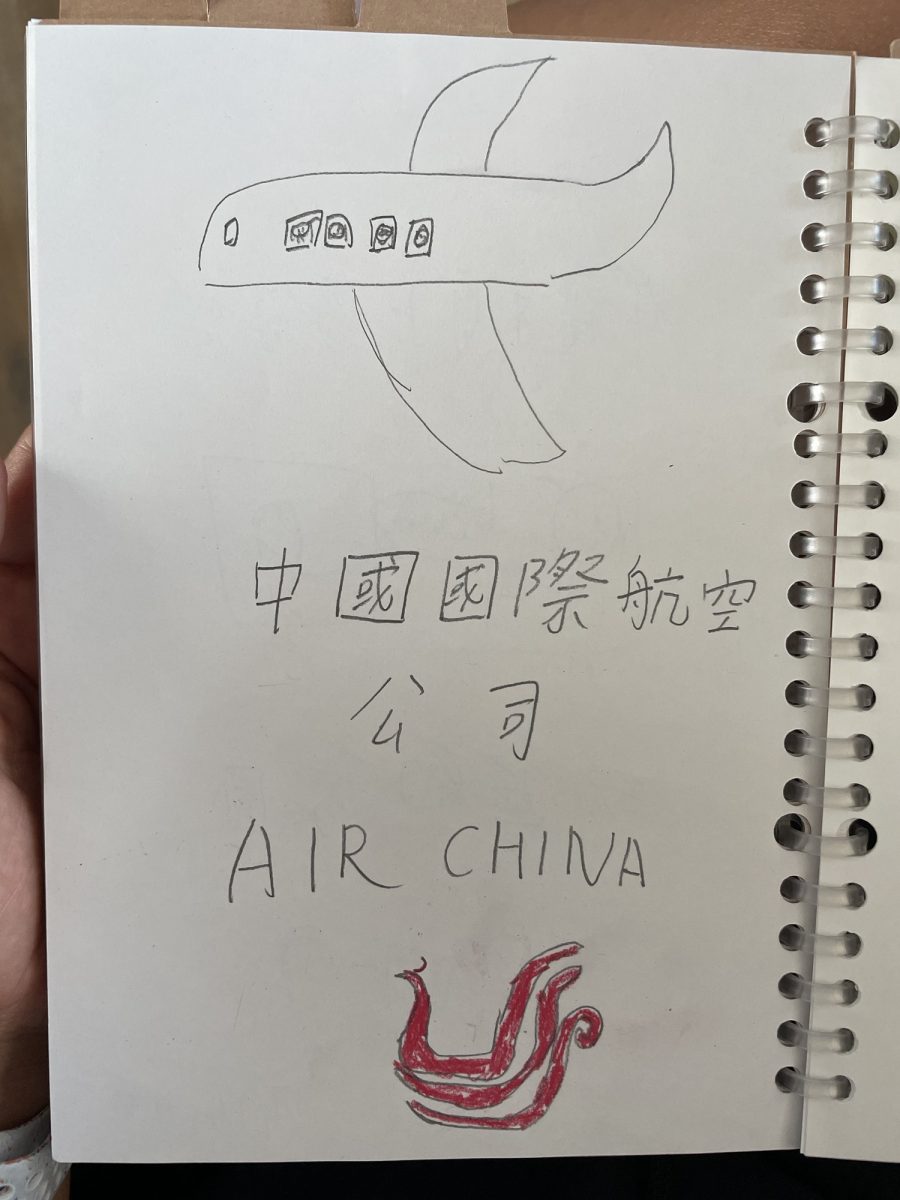 中國國際航空
公司
AIR CHINA